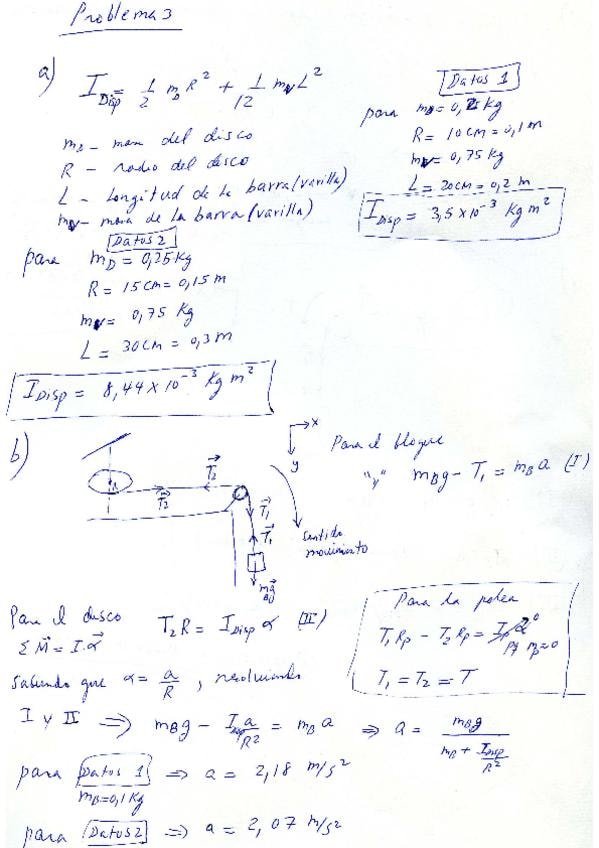 Problema 3
a) I_Disp = 1/2 m_D R² + 1/12 m_V L²
m_D - masa del disco
R - radio del disco
L - Longitud de la barra (varilla)
m_V - masa de la barra (varilla)
Datos 1
para m_D = 0,25 Kg
R = 10 cm = 0,1 m
m_V = 0,75 Kg
L = 20 cm = 0,2 m
I_Disp = 3,5 x 10⁻³ Kg m²
Datos 2
para m_D = 0,25 Kg
R = 15 cm = 0,15 m
m_V = 0,75 Kg
L = 30 cm = 0,3 m
I_Disp = 8,44 x 10⁻³ Kg m²
b)
x
y
T⃗₂
T⃗₂
T⃗₁
T⃗₁
m_B g⃗
sentido
movimiento
Para el bloque
"y" m_B g - T₁ = m_B a (I)
Para el disco
Σ M⃗ = I·α⃗
T₂ R = I_Disp α (II)
Para la polea
T₁ R_p - T₂ R_p = I_p α⃗ 0
pq m_p ≈ 0
T₁ = T₂ = T
Sabiendo que α = a/R , resolviendo
I y II ⟹ m_B g - I_Disp a/R² = m_B a ⟹ a = m_B g / (m_B + I_Disp/R²)
para Datos 1 ⟹ a = 2,18 m/s²
m_B = 0,1 Kg
para Datos 2 ⟹ a = 2,07 m/s²